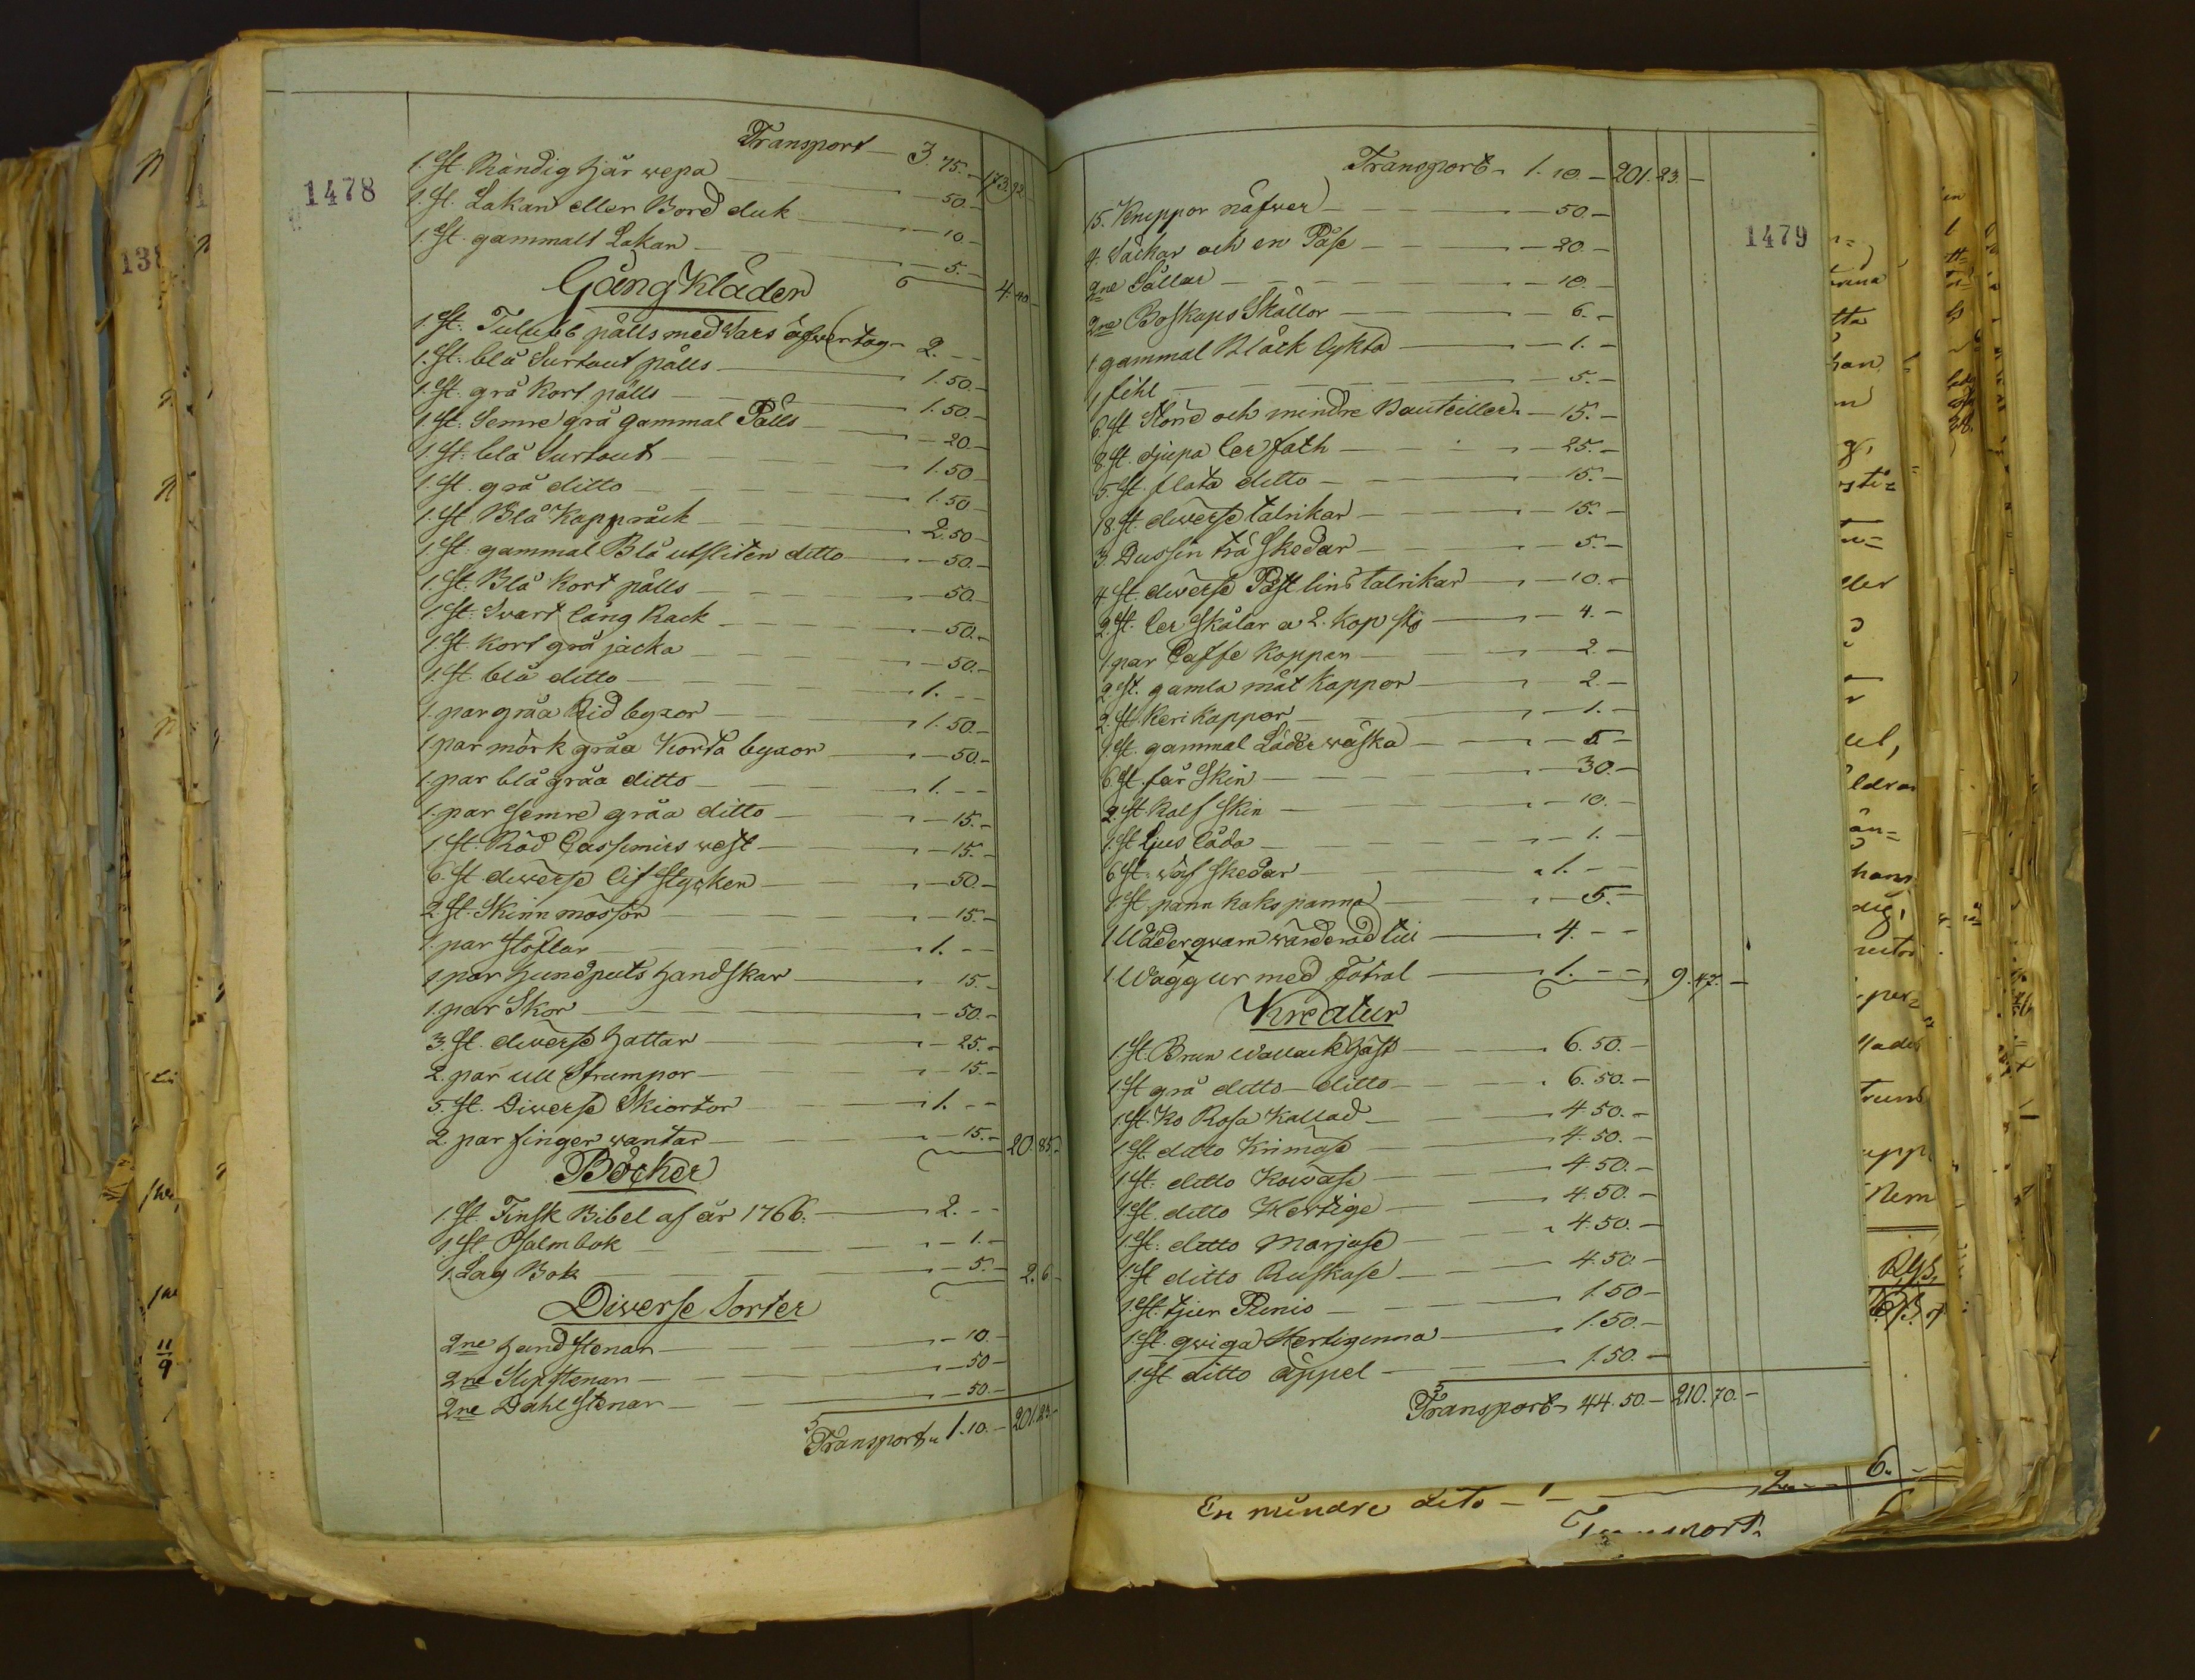 1478
Transport — 3. 75. — 173. 92 —
1. St. Rändig hjär wepa — 50. —
1. St. Lakan eller Bord duk — 10. —
1. St. gammalt Lakan — 5. — 4. 40 —
Gång Kläder
1. St. Tulubb pälls med Wars öfwertag — 2. — —
1. St. blå Surtout pälls — 1. 50. —
1. St. grå Kort pälls — 1. 50. —
1. St. Semre grå gammal Pälls — 20 —
1. St. blå Surtout — 1. 50 —
1. St. grå ditto — 1. 50 —
1. St. Blå Kappråck — 2. 50 —
1. St. gammal Blå utsliten ditto — 50. —
1. St. Blå Kort pälls — 50. —
1. St. Svart lång Rack — 50. —
1. St. Kort grå jacka — 50. —
1. St. blå ditto — 1. — —
1. par gråa Rid byxor — 1. 50. —
1 par mörk gråa Korta byxor — 50. —
1. par blå gråa ditto — 1. — —
1. par Semre gråa ditto — 15. —
1. St. Röd Cassimirs west — 15. —
6. St diwerse lif Stycken — 50. —
2. St. Skinn mössor — 15. —
1. par Stöflar — 1. — —
1 par hundputs handskar — 15. —
1. par Skor — 50. —
3. St. diwerse hattar — 25. —
2. par ull Strumpor — 15. —
5. St. Diwerse Skiortor — 1. — —
2. par finger wantar — 15. — 20. 85. —
Böcker
1. St. Finsk Bibel af år 1766. — 2. — —
1. St. Psalmbok — 1. —
1. Lag Bok — 5. — 2. 6 —
Diwerse Sorter
2ne hand Stenar — 10. —
2ne Slip Stenar — 50 —
2ne Dahl Stenar — 50. —
Transport 1. 10. — 201. 23 —
1479
Transport — 1. 10. — 201. 23. —
15. Kneppor näfwer — 50. —
4. Säckar och en Påse — 20 —
2ne Sållar — 10. —
2ne Boskaps Skällor — 6. —
1 gammal Bläck lykta — 1. —
1 fihl — 5. —
6. St Störe och mindre Bouteiller — 15. —
8. St. djupa ler fath — 25. —
5. St. flata ditto — 15. —
18. St. diwerse talrikar — 15. —
3. Dussin trä Skedar — 5. —
4 St. diwerse Påstlins talrikar — 10. —
2. St. ler Skålar a 2. Kop st — 4. —
1. par Caffe Koppen — 2 —
2. St. gamla mät Kappor — 2. —
2. St. Keri Kappor — 1. —
1. St. gammal Läder wäska — 5 —
6. St. får Skin — 30. —
2. St. Kalf Skin — 10. —
1. St Ljus låda — 1. —
6. St. wäf skedar — 1. — —
1. St. pann kaks panna — 5. —
1 Wädergwarn wärderad till — 4. — —
1 Wäggur med Fotral — 1. — — 9. 47. —
Kreatur
1. St. Brun Wallack häst — 6. 50. —
1. St grå ditto — ditto — 6. 50. —
1. St. Ko Rosa Kallad — 4. 50. —
1. St. dito Krimase — 4. 50. —
1. St. ditto Kowase — 4. 50. —
1. St. ditto Hertige — 4. 50. —
1. St. ditto Marjase — 4. 50. —
1. St ditto Ruskase — 4. 50 —
1. St. tjur Punio — 1. 50 —
1. St. qwiga Hertiginna — 1. 50. —
1. St ditto äppel — 1. 50. —
Transport 44. 50. — 210. 70. —
En mindre dito —
Transport